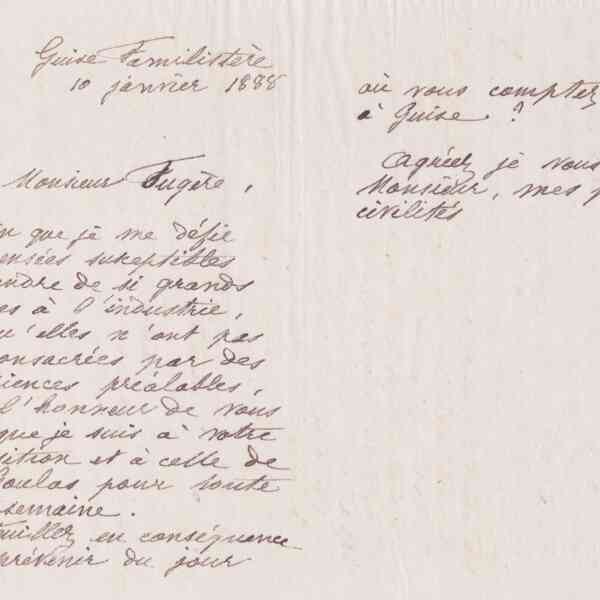 Guise Familistère
10 janvier 1888
Monsieur Fugère,
que je me défie
suseptibles
de si grands
à l'industrie,
qu'elles n'ont pas
consacrées par des
préalables,
l'honneur de vous
que je suis à votre
et à celle de
pour toute
semaine.
Veuillez en conséquence
prévenir du jour
où vous comptez
à Guise ?
Agréez je vous
Monsieur, mes
civilités